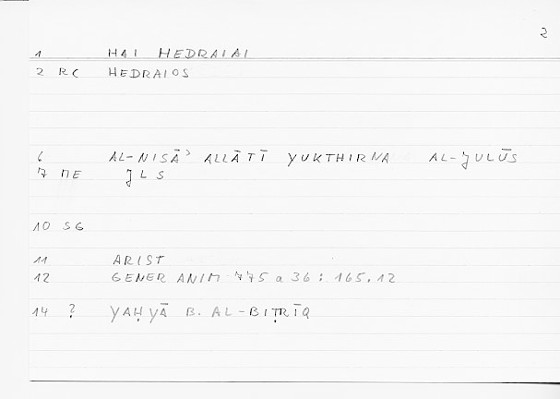 2
1 HAI HEDRAIAI
2 RC HEDRAIOS
6 AL-NISĀʾ ALLĀTĪ YUKTHIRNA AL-JULŪS
7 ME JLS
10 SG
11 ARIST
12 GENER ANIM 775 a 36 : 165.12
14 ? YAḤYĀ B. AL-BIṬRĪQ